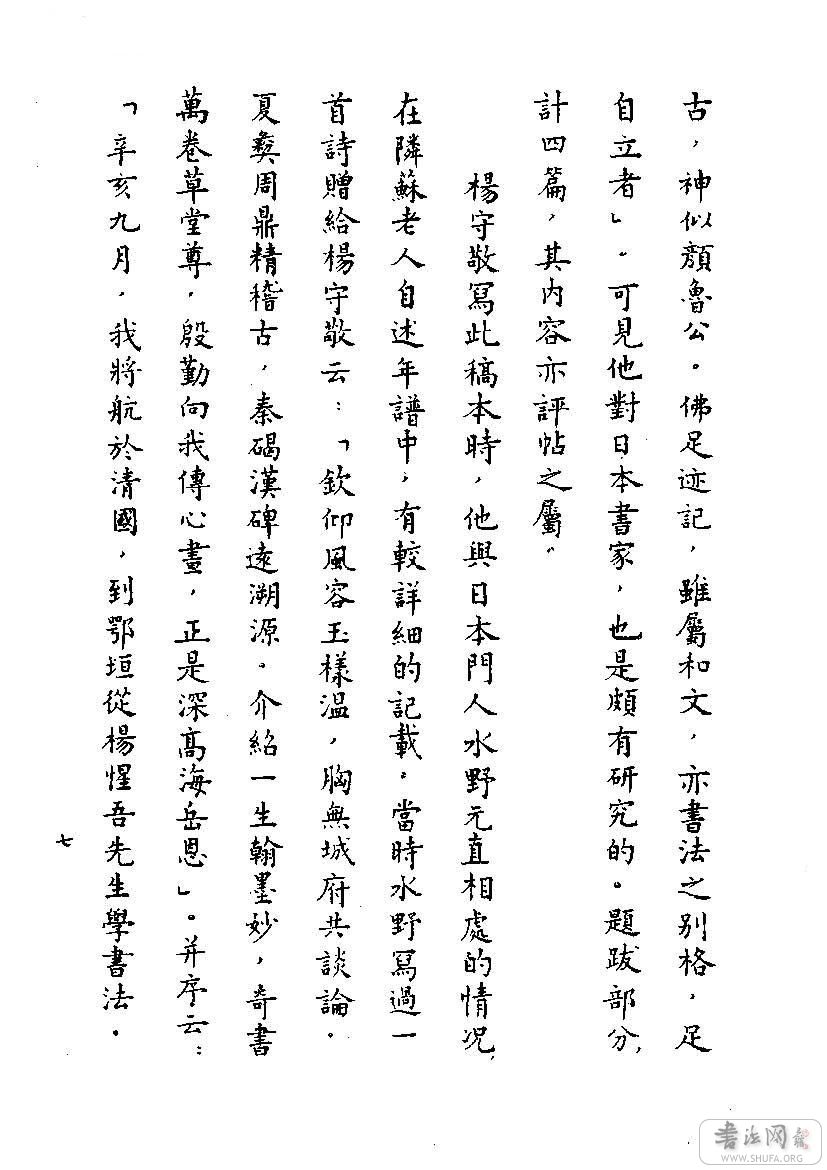 古，神似顏魯公。佛足迹記，雖屬和文，亦書法之別格，足
自立者」。可見他對日本書家，也是頗有研究的。題跋部分，
計四篇，其內容亦評帖之屬。
楊守敬寫此稿本時，他與日本門人水野元直相處的情况，
在隣蘇老人自述年譜中，有較詳細的記載。當時水野寫過一
首詩贈給楊守敬云：「欽仰風容玉樣温，胸無城府共談論。
夏彝周鼎精稽古，秦碣漢碑遠溯源。介紹一生翰墨妙，奇書
萬卷草堂尊，殷勤向我傳心畫，正是深高海岳恩」。并序云：
「辛亥九月，我將航於清國，到鄂垣從楊惺吾先生學書法。
七
書法网
WWW.SHUFA.ORG